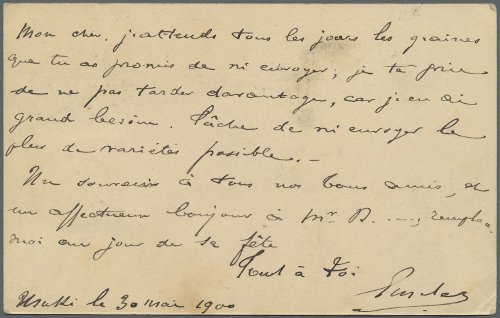 Mon cher, j'attends tous les jours les graines
que tu as promis de m'envoyer; je te prie
de ne pas tarder davantage, car j'en ai
grand besoin. Tâche de m'envoyer le
plus de variétés possible. —
Un souvenir à tous nos bons amis, et
un affectueux bonjour à Mr B. ...., 
moi au jour de sa fête
Tout à Toi
le 30 mai 1900